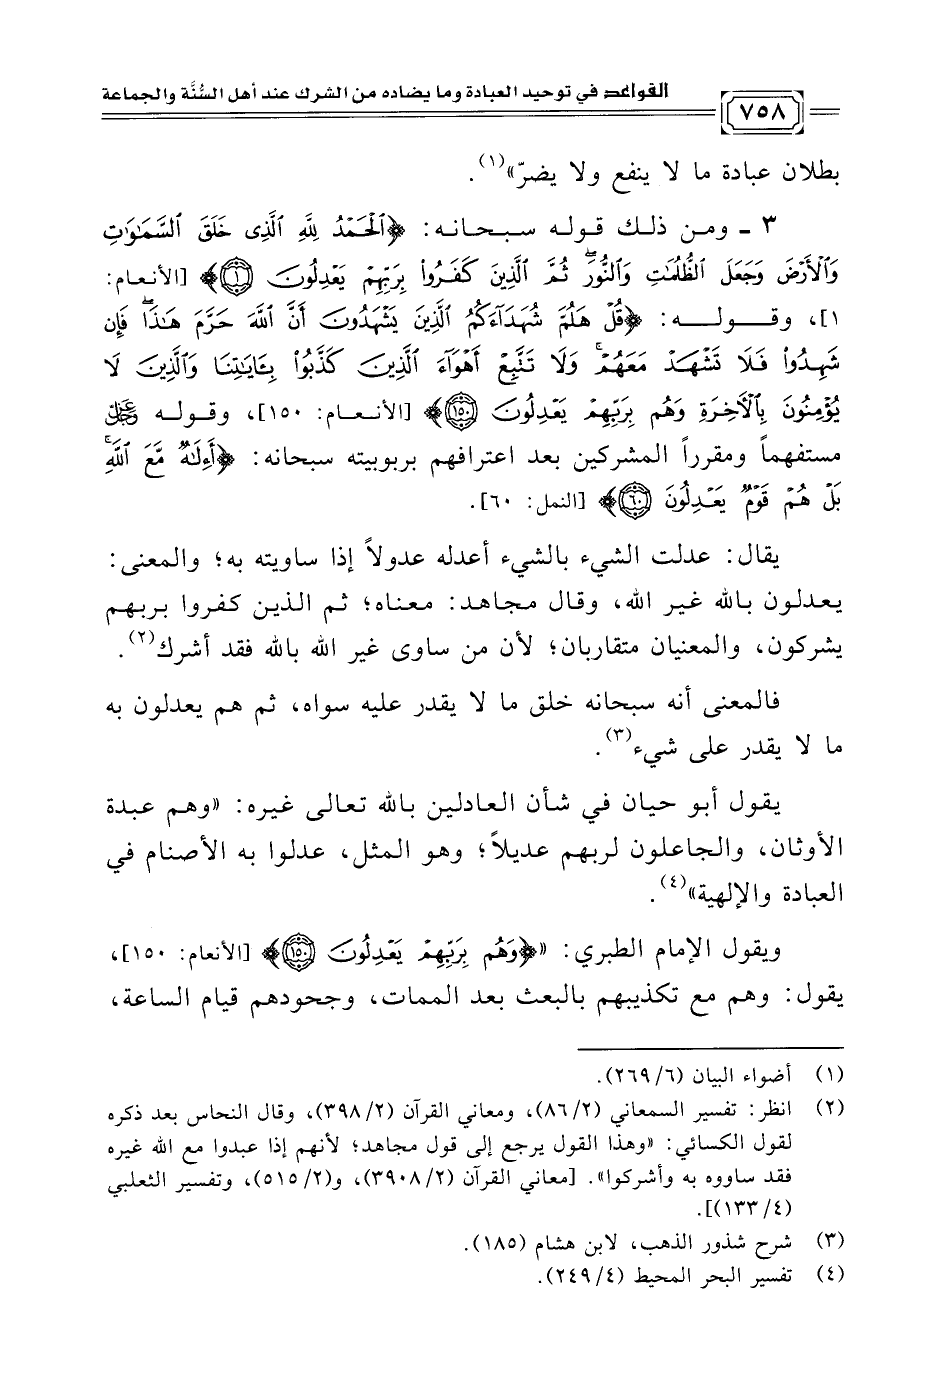 القواعد في توحيد العبادة وما يضاده من الشرك عند أهل السُّنَّة والجماعة
٧٥٨
بطلان عبادة ما لا ينفع ولا يضرّ»(١).
٣ ـ ومن ذلك قوله سبحانه: ﴿ٱلْحَمْدُ لِلَّهِ ٱلَّذِى خَلَقَ ٱلسَّمَـٰوَٰتِ
وَٱلْأَرْضَ وَجَعَلَ ٱلظُّلُمَـٰتِ وَٱلنُّورَ ۖ ثُمَّ ٱلَّذِينَ كَفَرُوا۟ بِرَبِّهِمْ يَعْدِلُونَ ١﴾ [الأنعام:
١]، وقوله: ﴿قُلْ هَلُمَّ شُهَدَآءَكُمُ ٱلَّذِينَ يَشْهَدُونَ أَنَّ ٱللَّهَ حَرَّمَ هَـٰذَا ۖ فَإِن
شَهِدُوا۟ فَلَا تَشْهَدْ مَعَهُمْ ۚ وَلَا تَتَّبِعْ أَهْوَآءَ ٱلَّذِينَ كَذَّبُوا۟ بِـَٔايَـٰتِنَا وَٱلَّذِينَ لَا
يُؤْمِنُونَ بِٱلْـَٔاخِرَةِ وَهُم بِرَبِّهِمْ يَعْدِلُونَ ١٥٠﴾ [الأنعام: ١٥٠]، وقوله ﷿
مستفهماً ومقرراً المشركين بعد اعترافهم بربوبيته سبحانه: ﴿أَءِلَـٰهٌ مَّعَ ٱللَّهِ ۚ
بَلْ هُمْ قَوْمٌ يَعْدِلُونَ ٦٠﴾ [النمل: ٦٠].
يقال: عدلت الشيء بالشيء أعدله عدولاً إذا ساويته به؛ والمعنى:
يعدلون بالله غير الله، وقال مجاهد: معناه؛ ثم الذين كفروا بربهم
يشركون، والمعنيان متقاربان؛ لأن من ساوى غير الله بالله فقد أشرك(٢).
فالمعنى أنه سبحانه خلق ما لا يقدر عليه سواه، ثم هم يعدلون به
ما لا يقدر على شيء(٣).
يقول أبو حيان في شأن العادلين بالله تعالى غيره: «وهم عبدة
الأوثان، والجاعلون لربهم عديلاً؛ وهو المثل، عدلوا به الأصنام في
العبادة والإلهية»(٤).
ويقول الإمام الطبري: «﴿وَهُم بِرَبِّهِمْ يَعْدِلُونَ ١٥٠﴾ [الأنعام: ١٥٠]،
يقول: وهم مع تكذيبهم بالبعث بعد الممات، وجحودهم قيام الساعة،
(١) أضواء البيان (٢٦٩/٦).
(٢) انظر: تفسير السمعاني (٨٦/٢)، ومعاني القرآن (٣٩٨/٢)، وقال النحاس بعد ذكره
لقول الكسائي: «وهذا القول يرجع إلى قول مجاهد؛ لأنهم إذا عبدوا مع الله غيره
فقد ساووه به وأشركوا». [معاني القرآن (٣٩٠٨/٢)، و(٥١٥/٢)، وتفسير الثعلبي
(١٣٣/٤)].
(٣) شرح شذور الذهب، لابن هشام (١٨٥).
(٤) تفسير البحر المحيط (٢٤٩/٤).